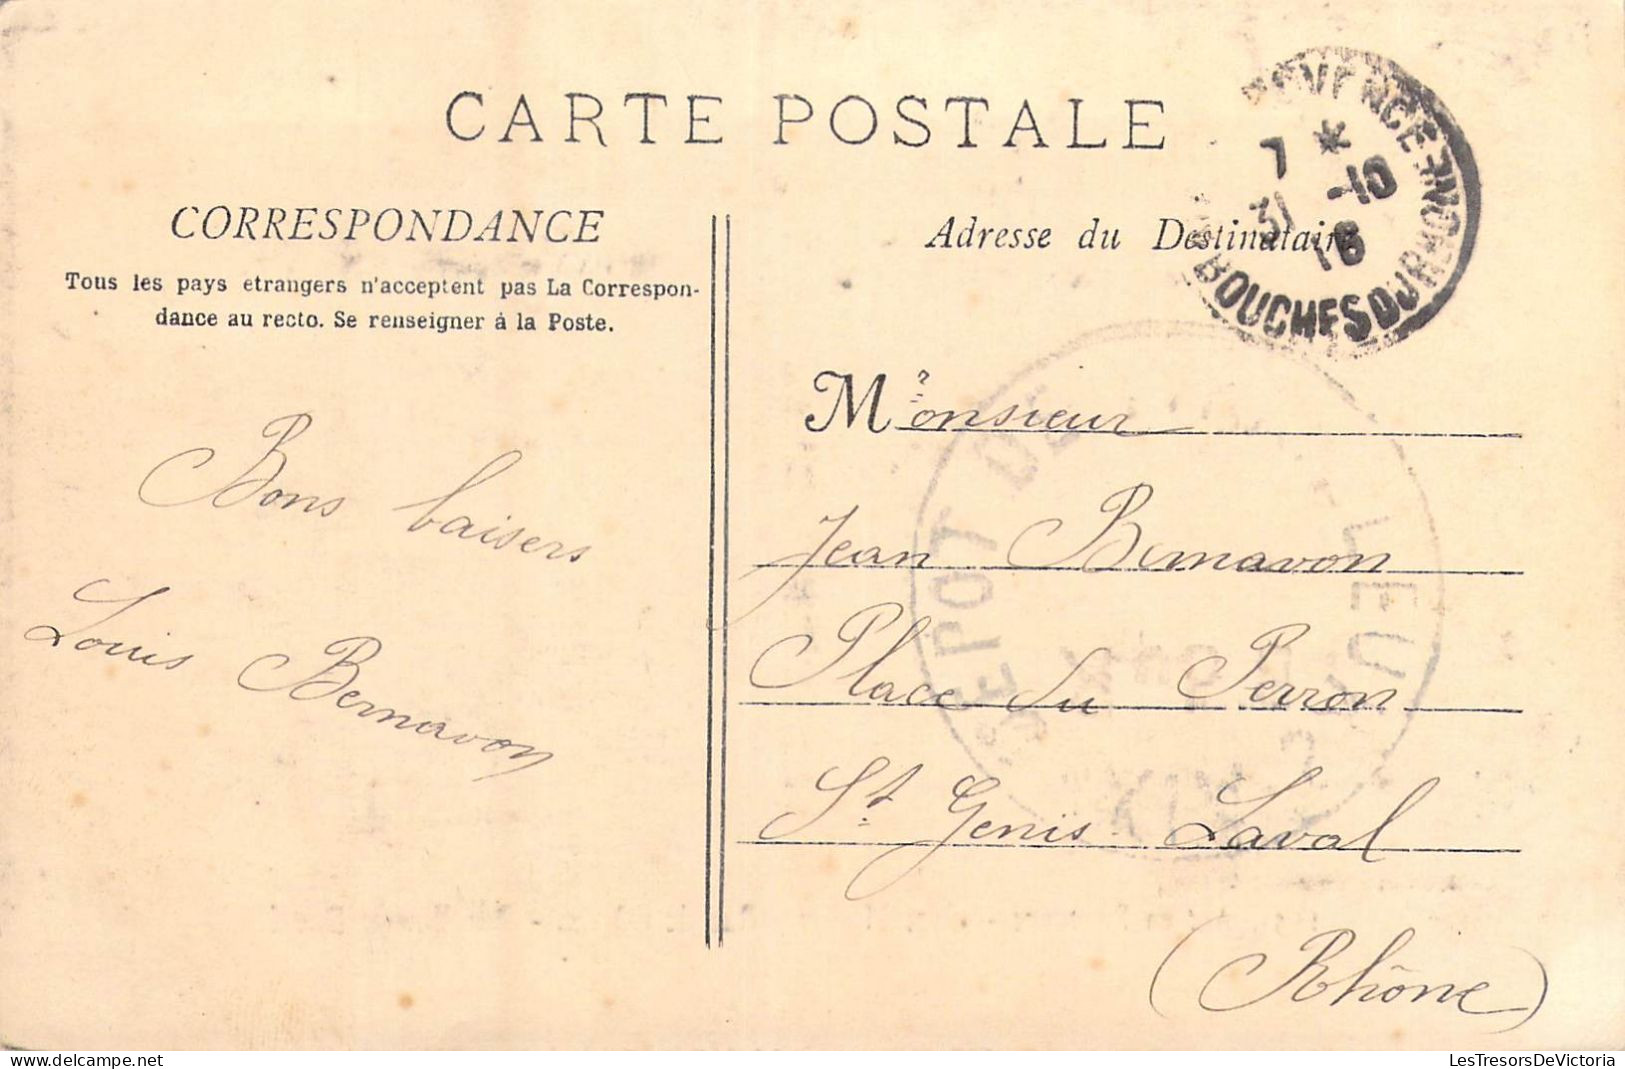 CARTE POSTALE
CORRESPONDANCE
Tous les pays etrangers n'acceptent pas La Correspon-
dance au recto. Se renseigner à la Poste.
Bons baisers
Louis Bernavon
7 *
31 -10
16
BOUCHES DU RHONE
Adresse du Destinataire
Monsieur
Jean Bernavon
Place du Perron
St Genis Laval
(Rhône)
DEPOT DE
LesTresorsDeVictoria